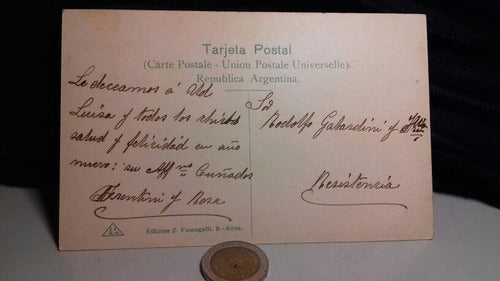 Tarjeta Postal
(Carte Postale - Union Postale Universelle)
Republica Argentina.
Le deceamos á Ud
Luisa y todos los chicos
salud y felicidad en año
nuevo: su Affmo Cuñados
Trentini y Rosa
Sor
Rodolfo Gabardini y
Resistencia
Edicion Z. Fumagalli, B.-Aires.